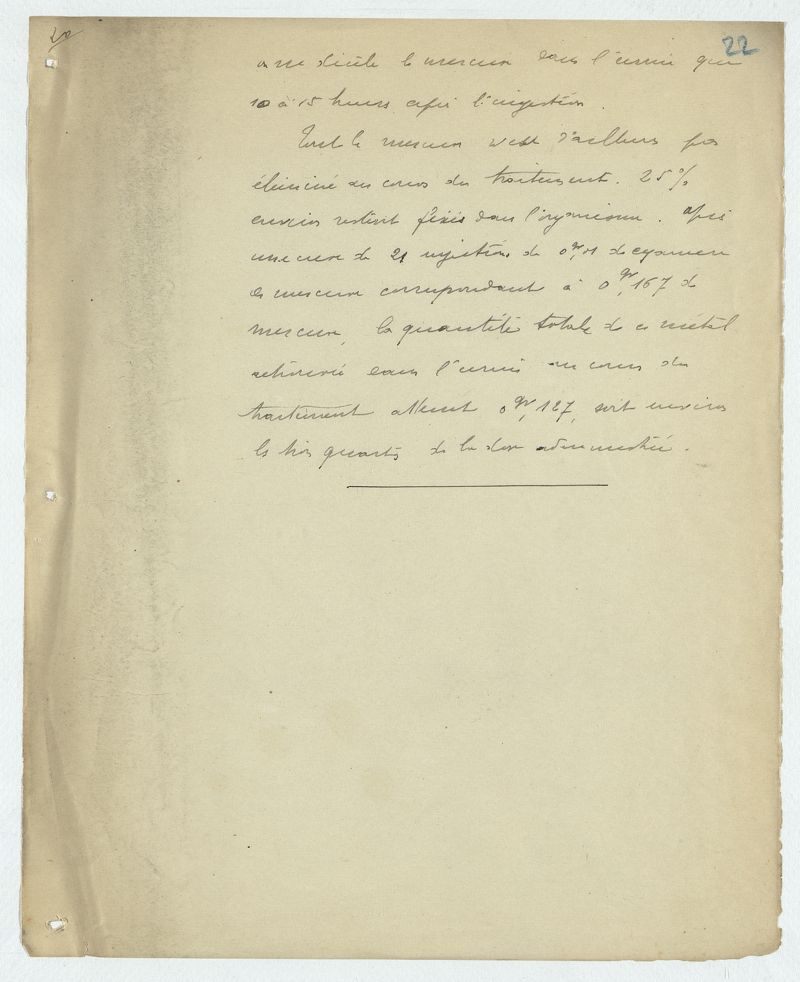 20
22
on ne décèle le mercure dans l'urine que
10 à 15 heures après l'injection.
Tout le mercure n'est d'ailleurs pas
éliminé au cours du traitement. 25 %
environ restent fixés dans l'organisme. Après
une cure de 21 injections de 0gr,01 de cyanure
de mercure correspondant à 0gr,167 de
mercure, la quantité totale de ce métal
retrouvée dans l'urine au cours du
traitement atteint 0gr,127, soit environ
les trois quarts de la dose administrée.